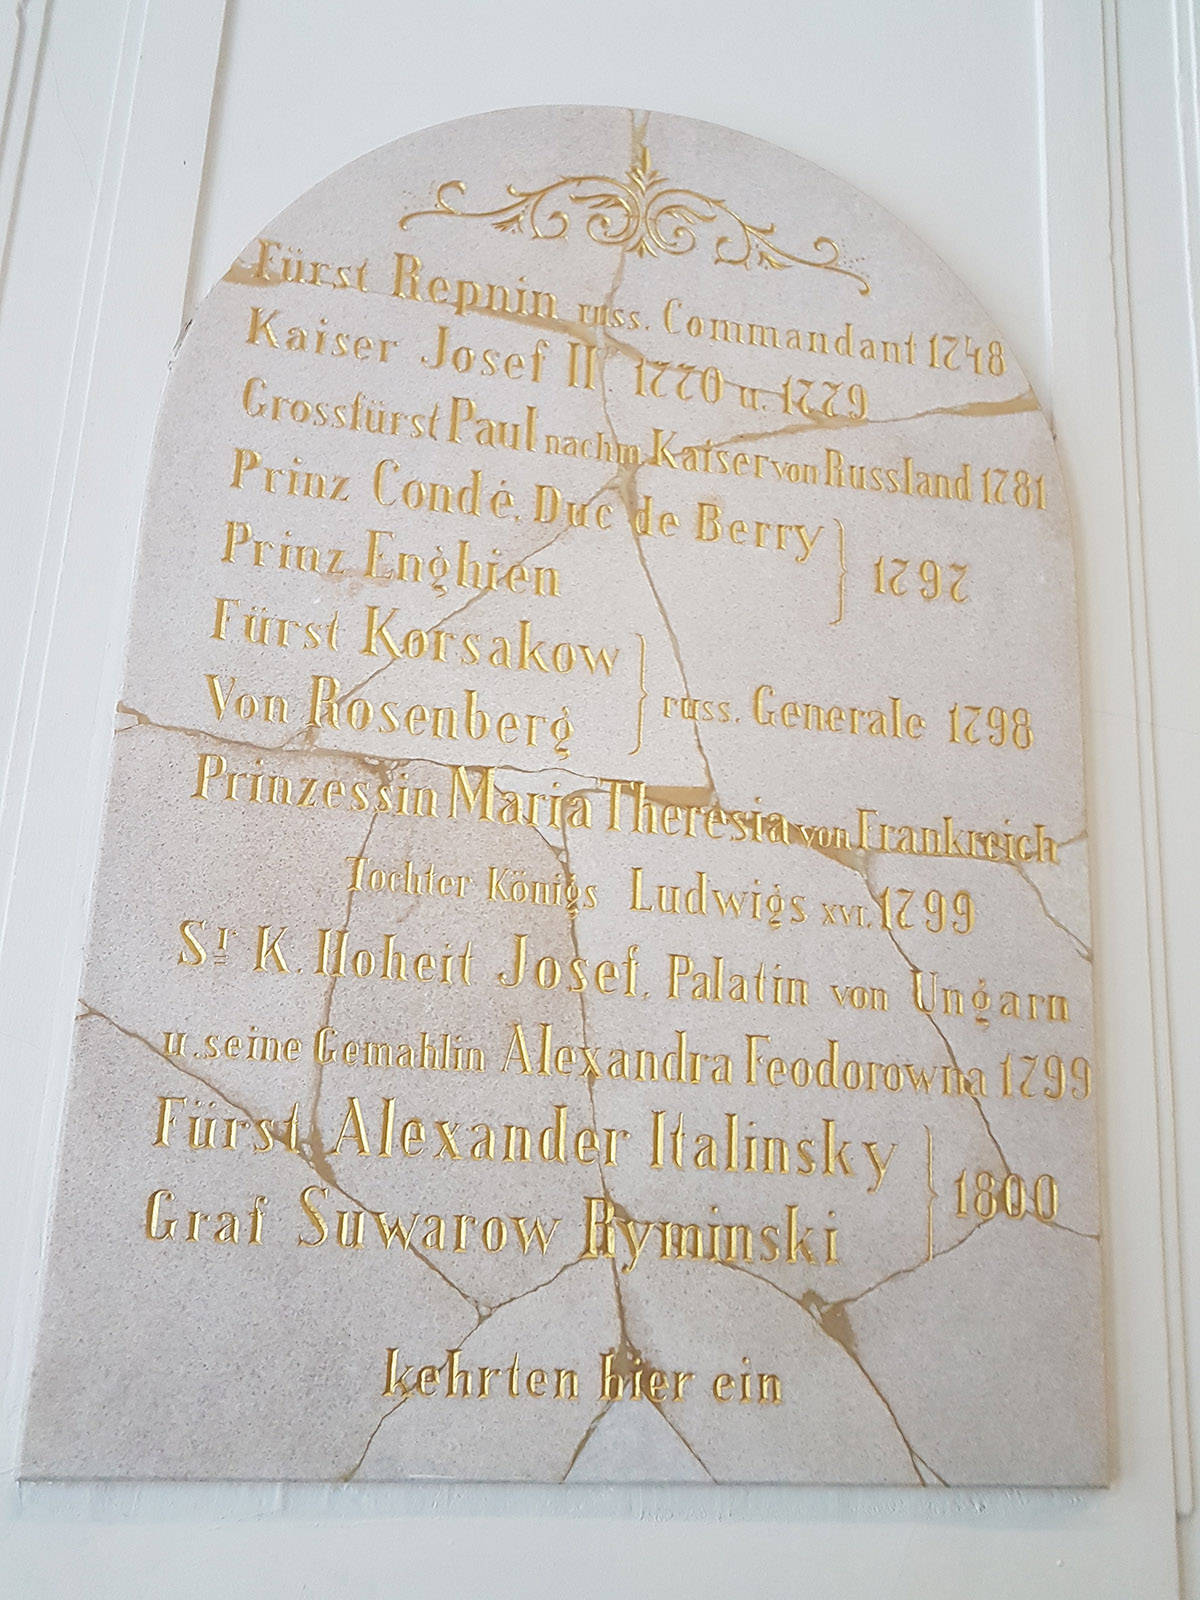 Fürst Repnin russ. Commandant 1748
Kaiser Josef II. 1770 u. 1779
Grossfürst Paul nachm. Kaiser von Russland 1781
Prinz Condé, Duc de Berry
Prinz Enghien } 1797
Fürst Korsakow
Von Rosenberg } russ. Generale 1798
Prinzessin Maria Theresia von Frankreich
Tochter Königs Ludwigs XVI. 1799
Sr. K. Hoheit Josef, Palatin von Ungarn
u. seine Gemahlin Alexandra Feodorowna 1799
Fürst Alexander Italinsky
Graf Suwarow Ryminski } 1800
kehrten hier ein